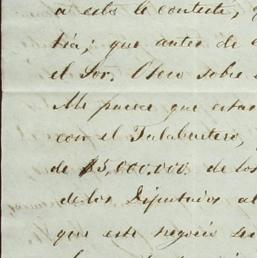 a esto le contesté, q
tia; que antes de
el Sor. Otero sobre
Me parece que estar
con el Talabartero,
de $5,000.000 de los
de los Diputados al
que este negocio se